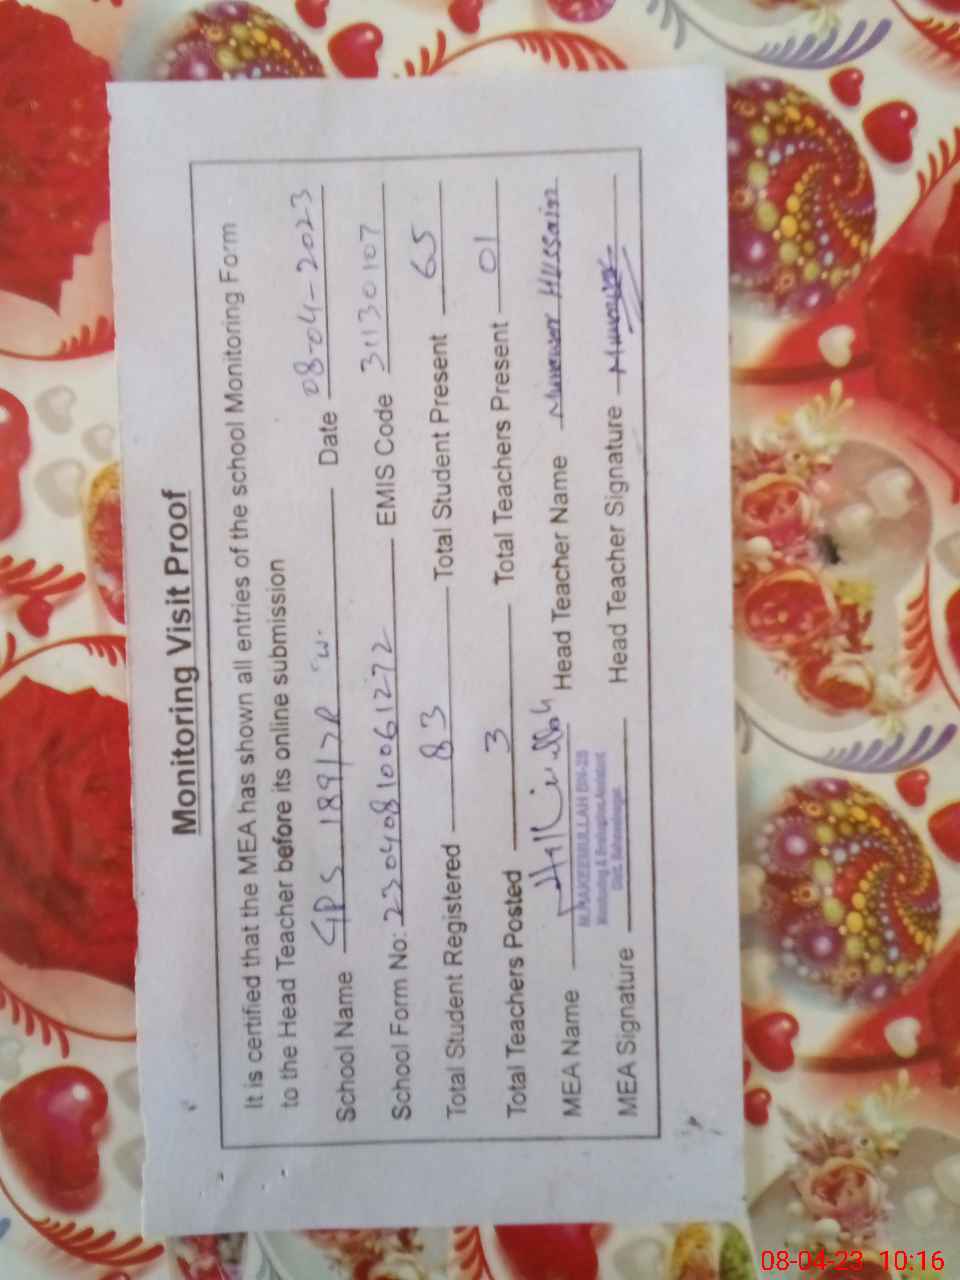 Monitoring Visit Proof
It is certified that the MEA has shown all entries of the school Monitoring Form
to the Head Teacher before its online submission
School Name GPS 189/7R "W" Date 08-04-2023
School Form No: 23040810061272 EMIS Code 31130107
Total Student Registered 83 Total Student Present 65
Total Teachers Posted 3 Total Teachers Present 01
MEA Name Head Teacher Name Munawar Hussain
M. HAKEEMULLAH BH-28
Monitoring & Evaluation Assistant
Distt. Bahawalnagar
MEA Signature Head Teacher Signature
08-04-23 10:16